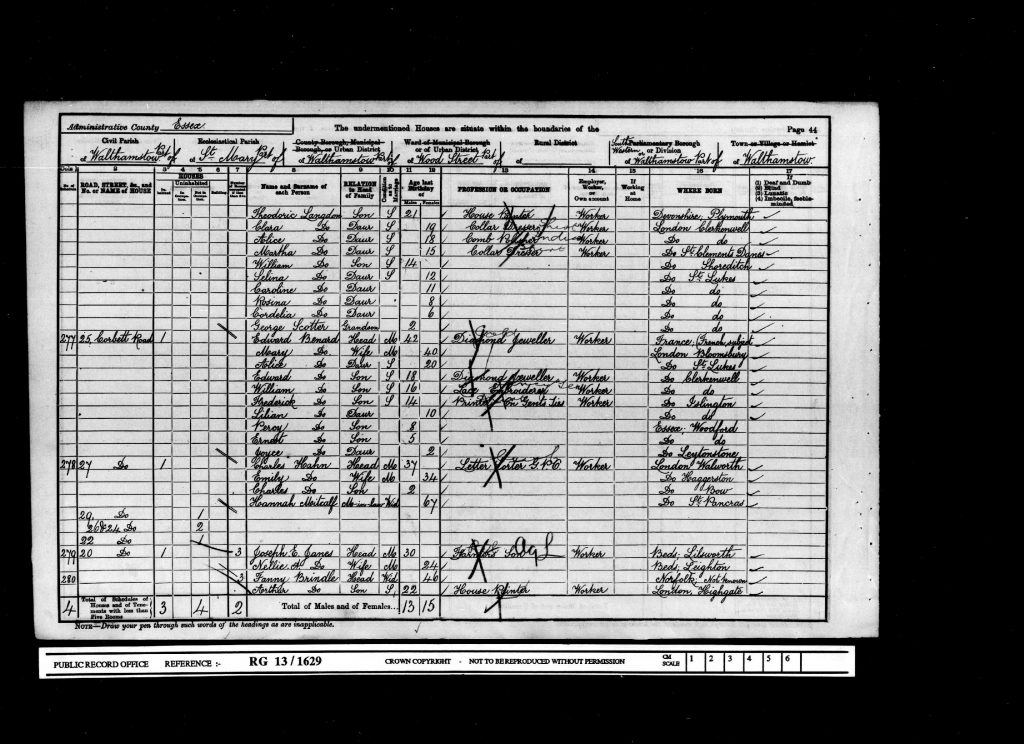 Administrative County Essex
The undermentioned Houses are situate within the boundaries of the
Page 44
Civil Parish
Ecclesiastical Parish
County Borough, Municipal Borough, or Urban District
Ward of Municipal Borough or of Urban District
Rural District
Parliamentary Borough or Division
Town or Village or Hamlet
of Walthamstow Part of
of St. Mary Part of
of Walthamstow Part of
of Wood Street Part
of
of Walthamstow Part of
of Walthamstow
ROAD, STREET, &c., and No. or NAME of HOUSE
HOUSES
Uninhabited
Name and Surname of each Person
RELATION to Head of Family
Age last Birthday of
Males
Females
PROFESSION OR OCCUPATION
Employer, Worker, or Own account
If Working at Home
WHERE BORN
If
(1) Deaf and Dumb
(2) Blind
(3) Lunatic
(4) Imbecile, feeble-minded
Theodoric Langdon Son S 21 House Worker Devonshire; Plymouth
Clara Do Daur S 19 Collar Dresser Worker London Clerkenwell
Alice Do Daur S 18 Comb Worker Do do
Martha Do Daur S 15 Collar Dresser Worker Do St. Clements Danes
William Do Son S 14 Do Shoreditch
Selina Do Daur S 12 Do St. Lukes
Caroline Do Daur 11 Do do
Rosina Do Daur 8 Do do
Cordelia Do Daur 6 Do do
George Scotter Grandson 2 Do do
277 25 Corbett Road 1 Edward Benard Head M 42 Diamond Jeweller Worker France; (French subject
Mary Do Wife M 40 London Bloomsbury
Alice Do Daur S 20 Do St. Lukes
Edward Do Son S 18 Diamond Jeweller Worker Do Clerkenwell
William Do Son S 16 Lace Worker Do do
Frederick Do Son S 14 On Gents Ties Worker Do Islington
Lilian Do Daur 10 Do do
Percy Do Son 8 Essex; Woodford
Ernest Do Son 5 Do do
Do Daur 2 Do Leytonstone
278 27 Do 1 Charles Hahn Head M 37 Letter Sorter G.P.O Worker London Walworth
Emily Do Wife M 34 Do Haggerston
Charles Do Son 2 Do Bow
Hannah Metcalf M-in-law Wid 67 Do St. Pancras
29 Do 1
26 & 24 Do 2
22 Do 1
279 20 Do 1 3 Joseph E. Janes Head M 30 Ag L Worker Beds;
Nellie A. Do Wife M 24 Beds; Leighton
280 3 Fanny Brindle Head Wid 46 Norfolk; Not known
Arthur Do Son S 22 House Worker London, Highgate
4 Total of Schedules of Houses and of Tenements with less than Five Rooms 3 4 2 Total of Males and of Females... 13 15
NOTE—Draw your pen through such words of the headings as are inapplicable.
PUBLIC RECORD OFFICE REFERENCE :- RG 13 / 1629 CROWN COPYRIGHT - NOT TO BE REPRODUCED WITHOUT PERMISSION CM SCALE 1 2 3 4 5 6